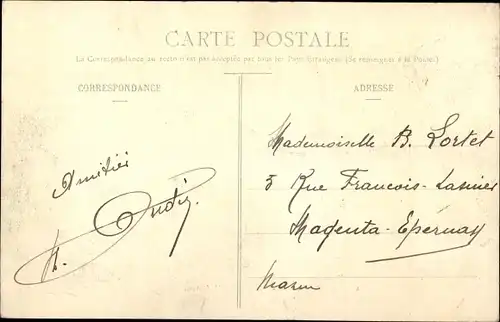 CARTE POSTALE
La Correspondance au recto n'est pas acceptée par tous les Pays Étrangers (Se renseigner à la Poste)
CORRESPONDANCE
ADRESSE
Amitiés
H.
Mademoiselle B. Lortet
5 Rue Francois-
Magenta-Epernay
Marne